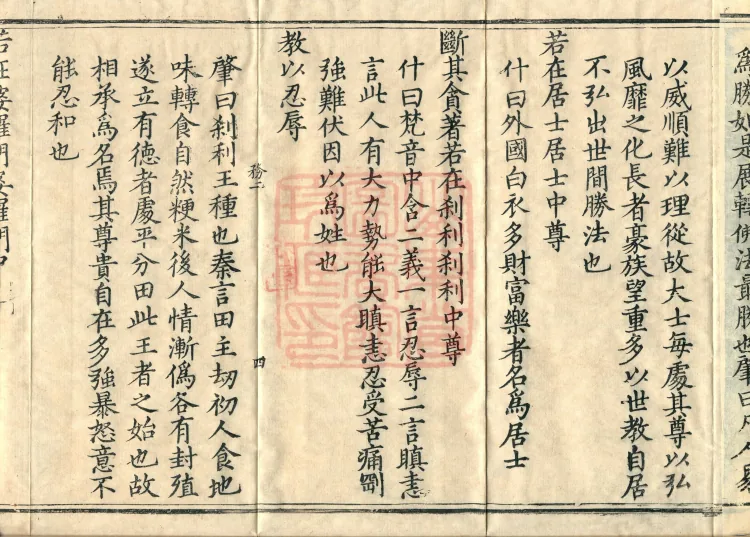 爲勝如是展轉佛法最勝也肇曰凡人易
以威順難以理從故大士每處其尊以弘
風靡之化長者豪族望重多以世教自居
不弘出世間勝法也
若在居士居士中尊
什曰外國白衣多財富樂者名爲居士
斷其貪著若在刹利刹利中尊
什曰梵音中含二義一言忍辱二言瞋恚
言此人有大力勢能大瞋恚忍受苦痛剛
強難伏因以爲姓也
教以忍辱
務二
四
肇曰刹利王種也秦言田主劫初人食地
味轉食自然粳米後人情漸僞各有封殖
遂立有德者處平分田此王者之始也故
相承爲名焉其尊貴自在多強暴怒意不
能忍和也
若在婆羅門婆羅門中